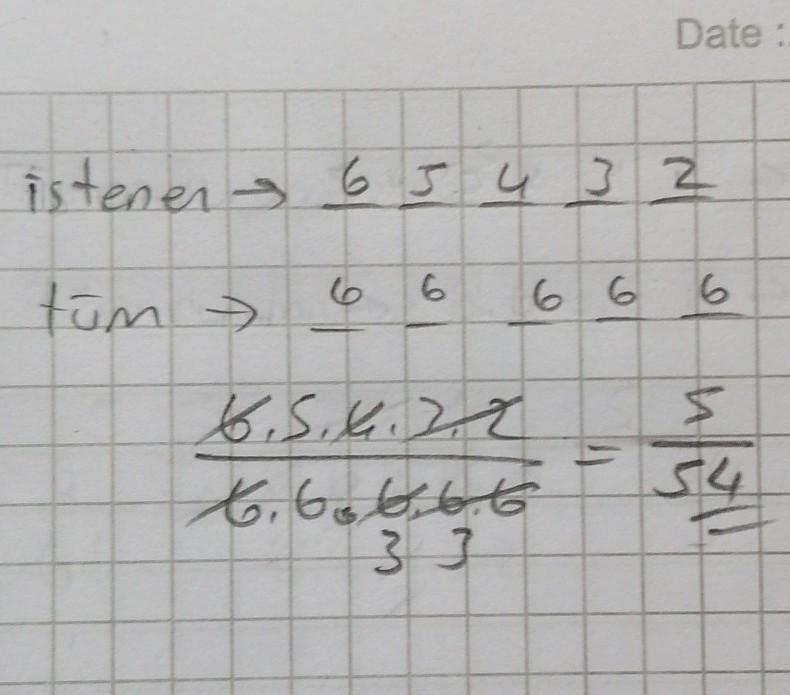 Date :
istenen → 6 5 4 3 2
tüm → 6 6 6 6 6
6.5.4.3.2 / 6.6.6.6.6 = 5 / 54
3 3